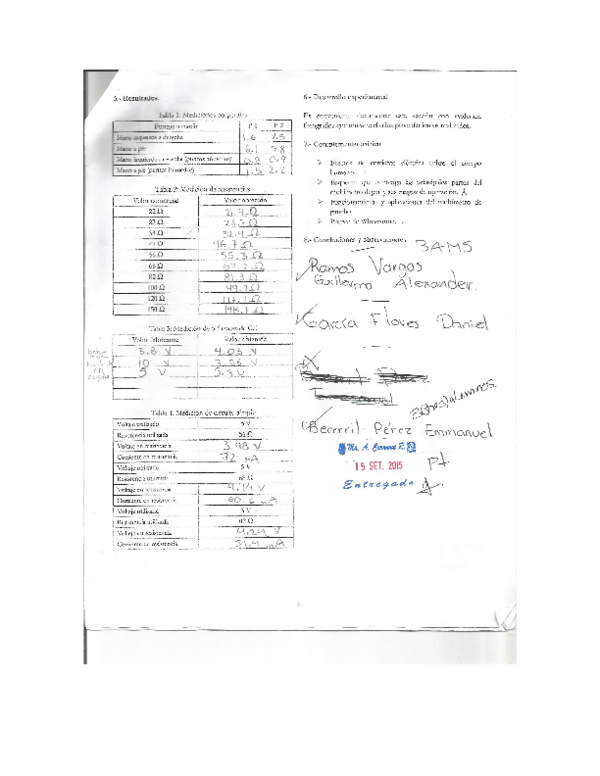 5.- Resultados.
Tabla 1: Mediciones corporales
P1 P2
Mano izquierda a derecha 1.6 2.5
Mano a pie 6.1
Mano izquierda a derecha (puntos húmedos) 0.9
Mano a pie (puntos húmedos) 1.5 2.2
Tabla 2: Medición de resistencias
Valor nominal Valor medición
22 Ω 21.9 Ω
27 Ω
33 Ω 32.9 Ω
46.7 Ω
56 Ω 55.3 Ω
68 Ω 67.2 Ω
82 Ω 81.3 Ω
100 Ω 99.7 Ω
120 Ω 117.1 Ω
150 Ω 148.1 Ω
Tabla 3: Medición de fuentes de C.C.
Valor fabricante Valor obtenido
3.8 V 4.03 V
10 V 3.56 V
5 V
Tabla 4: Medición de circuito simple
Voltaje utilizado 5 V
Resistencia utilizada 56 Ω
Voltaje en resistencia 3.98 V
Corriente en resistencia 72 mA
Voltaje utilizado 5 V
Resistencia utilizada 68 Ω
Voltaje en resistencia 4.14 V
Corriente en resistencia 60.6 mA
Voltaje utilizado 5 V
Resistencia utilizada 82 Ω
Voltaje en resistencia 4.24 V
Corriente en resistencia 51.4 mA
6.- Desarrollo experimental
Es conveniente documentar esta sección con evidencia
fotográfica
7.- Complemento teórico
➢ Efectos de corriente eléctrica sobre el cuerpo
humano.
➢ Esquema que contenga las principales partes del
multímetro digital y sus rangos de operación.
➢ Funcionamiento y aplicaciones del multímetro de
gancho
➢ Puente de Wheatstone.
8.- Conclusiones y observaciones
3AM5
Ramos Vargas
Guillermo Alexander.
García Flores Daniel
3 (tres) alumnos.
Becerril Pérez Emmanuel
Ma. A. Carmona R.
15 SET. 2015
Entregado